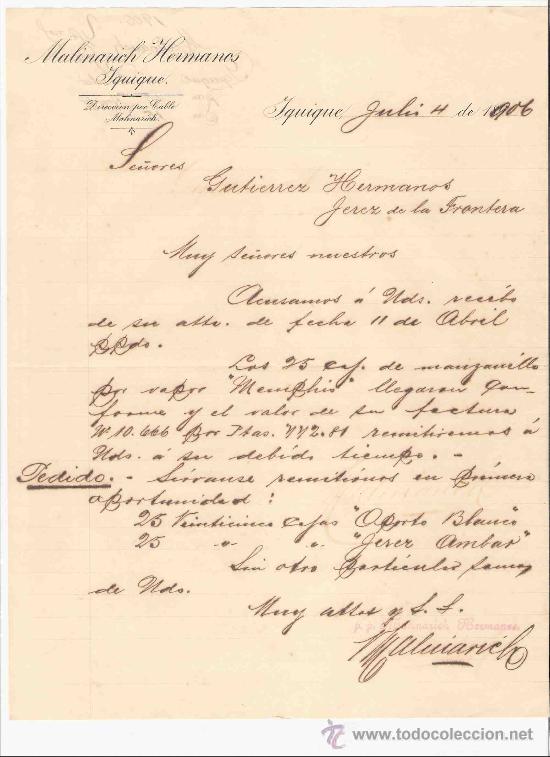 Malinarich Hermanos
Iquique.
Direccion por Cable
Malinarich.
Iquique, Julio 4 de 1906
Señores
Gutierrez Hermanos
Jerez de la Frontera
Muy Señores nuestros
Acusamos á Uds. recibo
de su atta. de fecha 11 de Abril
ppdo.
Los 25 caj. de manzanilla
por vapor "Memphis" llegaron con-
forme y el valor de su factura
Nº 10.666 por Ptas. 772.81 remitiremos á
Uds. a su debido tiempo. -
Pedido. - Sírvanse remitirnos en primera
oportunidad:
25 Veinticinco cajas "Oporto Blanco"
25 " " "Jerez Ambar"
Sin otro particular somos
de Uds.
Muy attos y S. S.
p. p. Malinarich Hermanos.
Malinarich
www.todocoleccion.net
todocoleccion.net